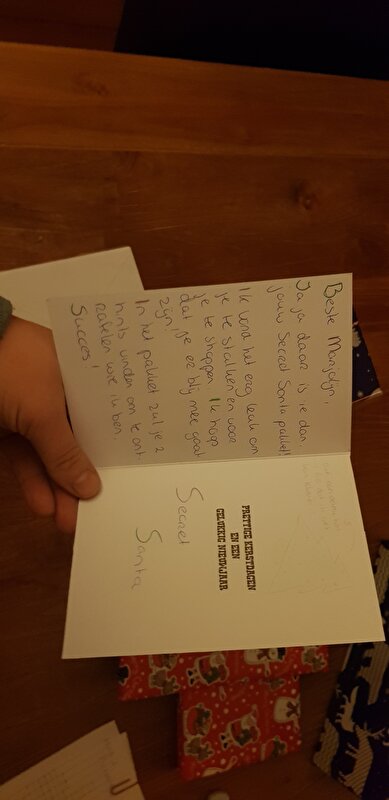 Beste Marjolijn,
Ja ja daar is ie dan
jouw Secret Santa pakket!
Ik vond het erg leuk om
je te stalken en voor
je te shoppen. Ik hoop
dat je er blij mee gaat
zijn,
In het pakket zul je 2
hints vinden om te ont
rafelen wie ik ben.
Succes!
PRETTIGE KERSTDAGEN
EN EEN
GELUKKIG NIEUWJAAR
Secret
Santa